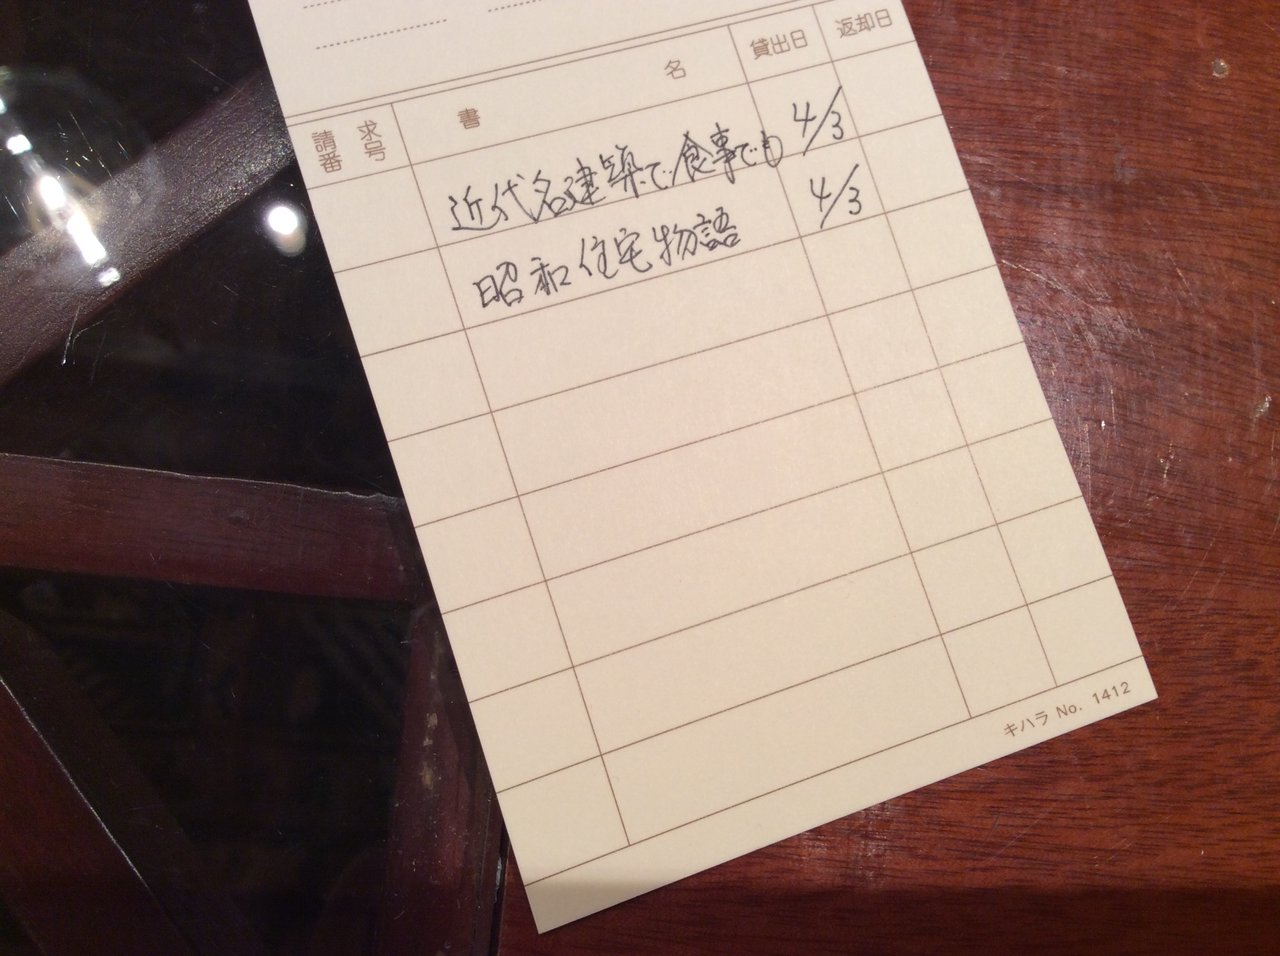 請求番号 書名 貸出日 返却日
近代名建築で食事でも 4/3
昭和住宅物語 4/3
キハラ No. 1412